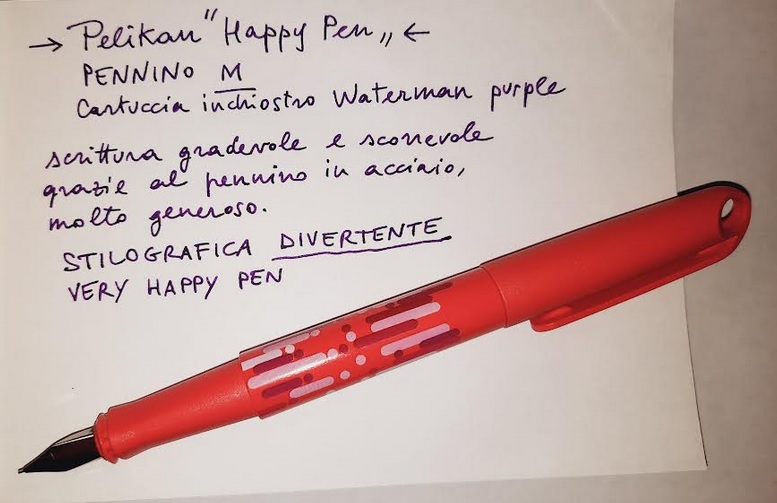 → Pelikan "Happy Pen„ ←
PENNINO M
Cartuccia inchiostro Waterman purple
scrittura gradevole e scorrevole
grazie al pennino in acciaio,
molto generoso.
STILOGRAFICA DIVERTENTE
VERY HAPPY PEN